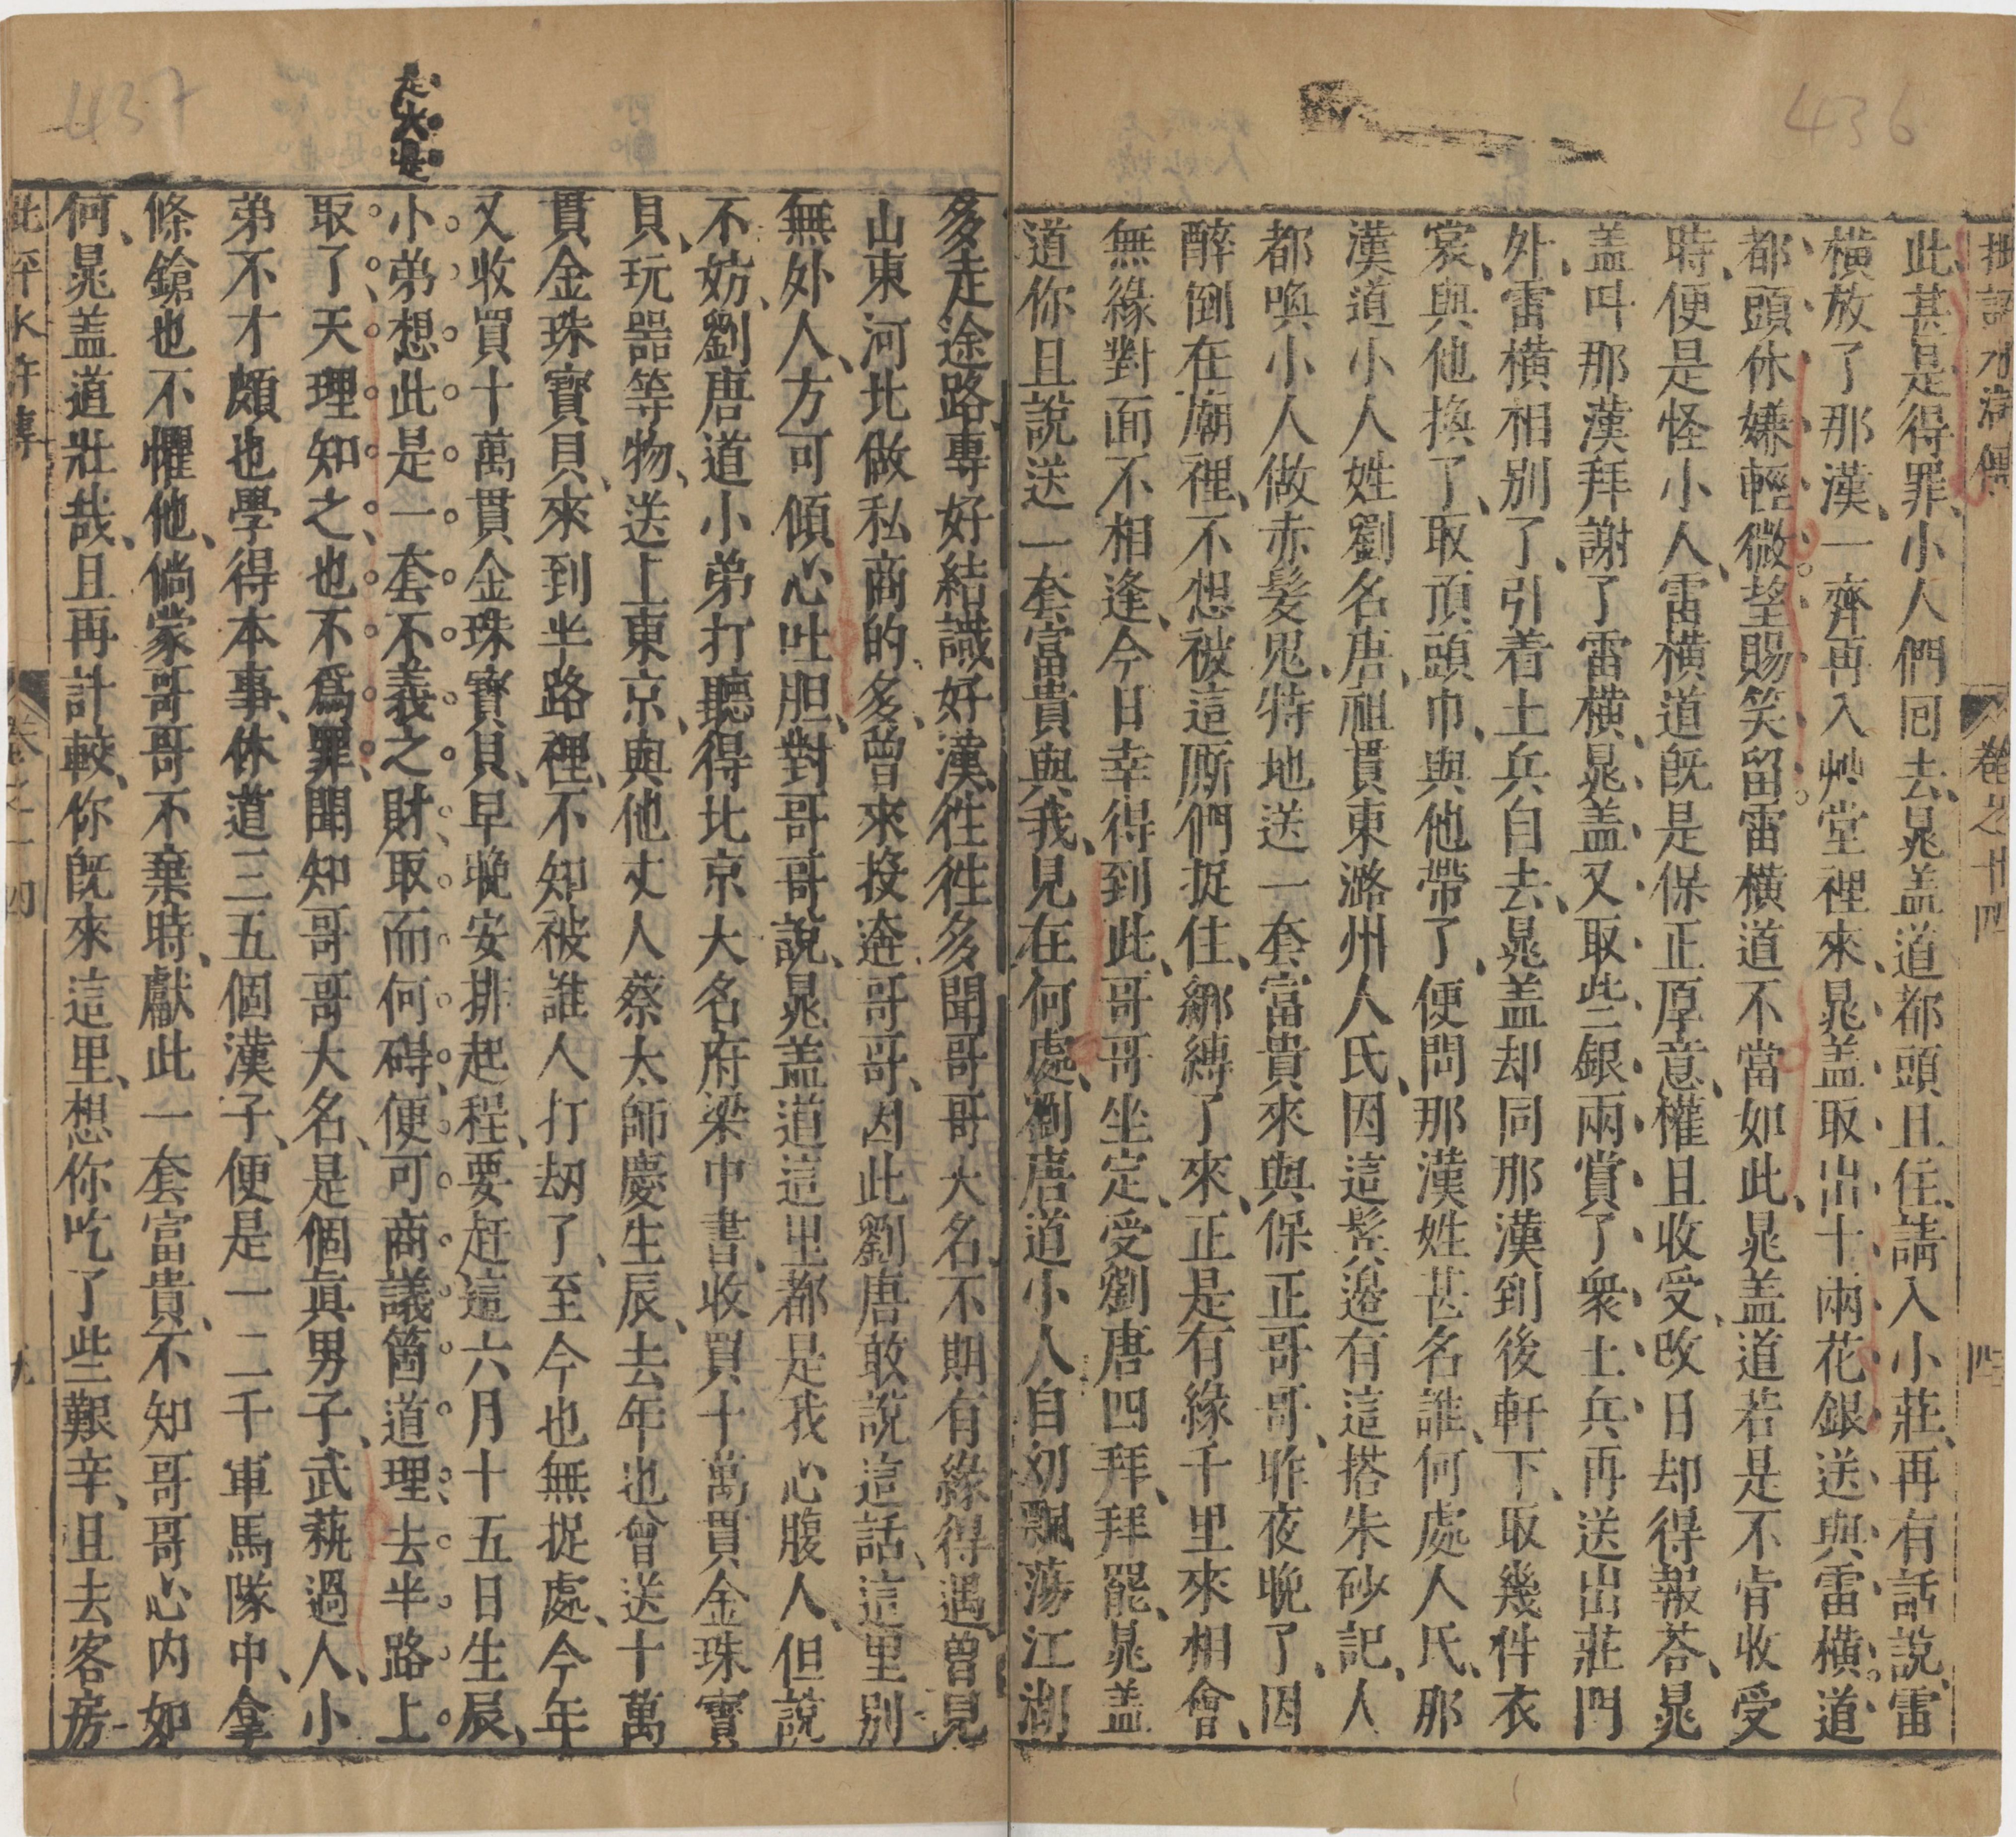 436
批評水滸傳 卷之十四
此、甚是得罪、小人們囘去、晁盖道都頭且住、請入小莊、再有話說、雷
橫放了那漢、一齊再入艸堂裡來、晁盖取出十兩花銀送與雷橫、道
都頭休嫌輕微、望賜笑留、雷橫道不當如此、晁盖道若是不肯收受
時、便是怪小人、雷橫道旣是保正厚意、權且收受、改日却得報荅、晁
盖呌那漢拜謝了雷橫、晁盖又取些銀兩賞了衆土兵、再送出莊門
外、雷橫相別了、引着土兵自去、晁盖却同那漢到後軒下、取幾件衣
裳、與他換了、取頂頭巾、與他帶了、便問那漢姓甚名誰、何處人氏、那
漢道小人姓劉名唐、祖貫東潞州人氏、因這鬂邉有這搭朱砂記、人
都喚小人做赤髮鬼、特地送一套富貴來與保正哥哥、昨夜晚了、因
醉倒在廟裡、不想被這厮們捉住、綁縛了來、正是有緣千里來相會、
無緣對面不相逢、今日幸得到此、哥哥坐定、受劉唐四拜、拜罷、晁盖
道你且說送一套富貴與我、見在何處、劉唐道小人自幼飄蕩江湖
437
多走途路、專好結識好漢、徃徃多聞哥哥大名、不期有緣得遇、曽見
山東河北做私商的、多曾來投逩哥哥、因此劉唐敢說這話、這里別
無外人、方可傾心吐胆、對哥哥說、晁盖道這里都是我心腹人、但說
不妨、劉唐道小弟打聽得北京大名府梁中書、收買十萬貫金珠寶
貝、玩噐等物、送上東京、與他丈人蔡太師慶生辰、去年也曾送十萬
貫金珠寶貝、來到半路裡、不知被誰人打刼了、至今也無捉處、今年
又收買十萬貫金珠寶貝、早晚安排起程、要赶這六月十五日生辰、
小弟想此是一套不義之財、取而何碍、便可商議箇道理、去半路上
取了、天理知之、也不爲罪、聞知哥哥大名、是個眞男子、武藝過人、小
弟不才、頗也學得本事、休道三五個漢子、便是一二千軍馬隊中、拿
條鎗也不懼他、倘蒙哥哥不棄時、獻此一套富貴、不知哥哥心内如
何、晁盖道壯哉、且再計較、你旣來這里、想你吃了些艱辛、且去客房
批評水滸傳 卷之十四